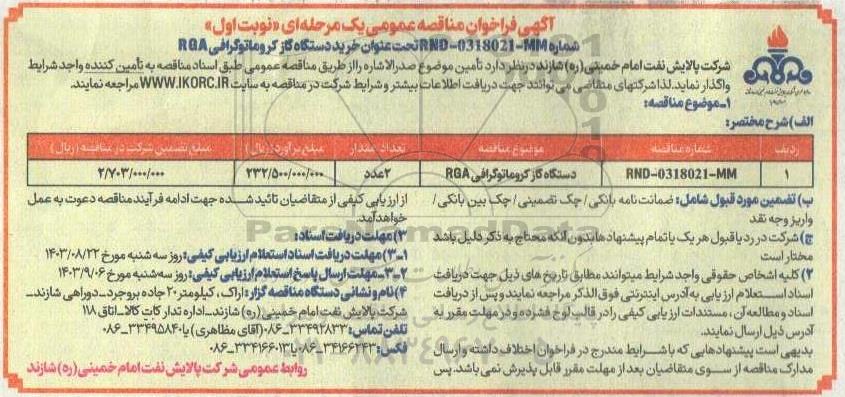 آگهی فراخوان مناقصه عمومی یک مرحله‌ای «نوبت اول»
شماره RND-0318021-MM تحت عنوان خرید دستگاه گاز کروماتوگرافی RGA
شرکت پالایش نفت امام خمینی (ره) شازند در نظر دارد تأمین موضوع صدرالاشاره را از طریق مناقصه عمومی طبق اسناد مناقصه به تأمین کننده واجد شرایط
واگذار نماید. لذا شرکتهای متقاضی می‌توانند جهت دریافت اطلاعات بیشتر و شرایط شرکت در مناقصه به سایت WWW.IKORC.IR مراجعه نمایند.
۱ـ موضوع مناقصه:
الف) شرح مختصر:
ردیف شماره مناقصه موضوع مناقصه تعداد مقدار مبلغ برآورد (ریال) مبلغ تضمین شرکت در مناقصه (ریال)
۱ RND-0318021-MM دستگاه گاز کروماتوگرافی RGA ۲عدد ۲۳۲/۵۰۰/۰۰۰/۰۰۰ ۲/۷۰۳/۰۰۰/۰۰۰
ب) تضمین مورد قبول شامل: ضمانت نامه بانکی / چک تضمینی / چک بین بانکی /
واریز وجه نقد
ج) شرکت در رد یا قبول هر یک یا تمام پیشنهادها بدون آنکه محتاج به ذکر دلیل باشد
مختار است
۲) کلیه اشخاص حقوقی واجد شرایط میتوانند مطابق تاریخ های ذیل جهت دریافت
اسناد استعلام ارزیابی به آدرس اینترنتی فوق الذکر مراجعه نمایند و پس از دریافت
اسناد و مطالعه آن، مستندات ارزیابی کیفی را در قالب لوح فشرده و در مهلت مقرر به
آدرس ذیل ارسال نمایند.
بدیهی است پیشنهادهایی که با شرایط مندرج در فراخوان اختلاف داشته و ارسال
مدارک مناقصه از سوی متقاضیان بعد از مهلت مقرر قابل پذیرش نمی باشد. پس
از ارزیابی کیفی از متقاضیان تائید شده جهت ادامه فرآیند مناقصه دعوت به عمل
خواهد آمد.
۳) مهلت دریافت اسناد:
۱ـ۳) مهلت دریافت اسناد استعلام ارزیابی کیفی: روز سه شنبه مورخ ۱۴۰۳/۰۸/۲۲
۲ـ۳ـ مهلت ارسال پاسخ استعلام ارزیابی کیفی: روز سه شنبه مورخ ۱۴۰۳/۹/۰۶
۴) نام و نشانی دستگاه مناقصه گزار: اراک، کیلومتر ۲۰ جاده بروجرد ـ دوراهی شازند ـ
شرکت پالایش نفت امام خمینی (ره) شازند ـ اداره تدارکات کالا ـ اتاق ۱۱۸
تلفن تماس: ۳۳۴۹۲۸۳۳ـ۰۸۶ (آقای مظاهری) یا ۳۳۴۹۵۸۴۰ـ۰۸۶
فکس: ۳۴۱۶۶۲۴۳ـ۰۸۶ یا ۳۳۴۱۶۶۰۱۳ـ۰۸۶
روابط عمومی شرکت پالایش نفت امام خمینی (ره) شازند